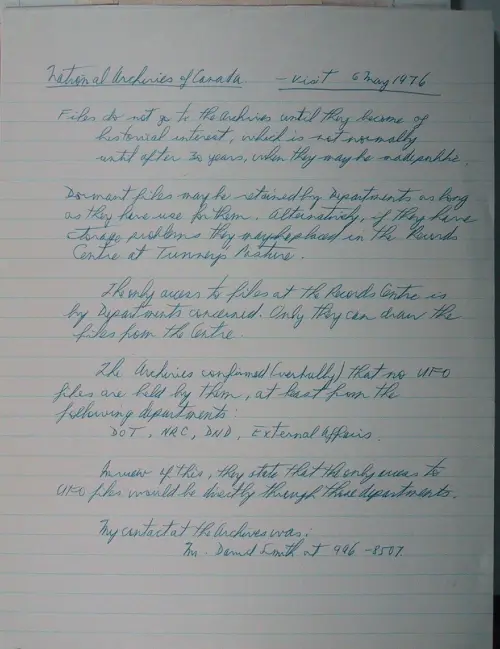 National Archives of Canada - visit 6 May 1976
Files do not go to the Archives until they become of
historical interest, which is not normally
until after 30 years, when they may be made public.
Dormant files may be retained by Departments as long
as they have use for them. Alternatively, if they have
storage problems they may be placed in the Records
Centre at Tunney's Pasture.
The only access to files at the Records Centre is
by Departments concerned. Only they can draw the
files from the Centre.
The Archives confirmed (verbally) that no UFO
files are held by them, at least from the
following departments:
DOT, NRC, DND, External Affairs.
In view of this, they state that the only access to
UFO files would be directly through those departments.
My contact at the Archives was:
Mr. David Smith at 996-8507